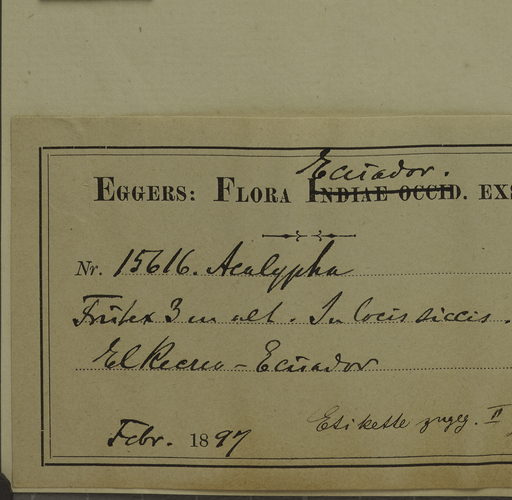 Ecuador.
EGGERS: FLORA INDIAE OCCID. EXS
Nr. 15616. Acalypha
Frutex 3 m alt. In locis siccis.
El Recreo - Ecuador
Febr. 1897
Etikette zugeg. II